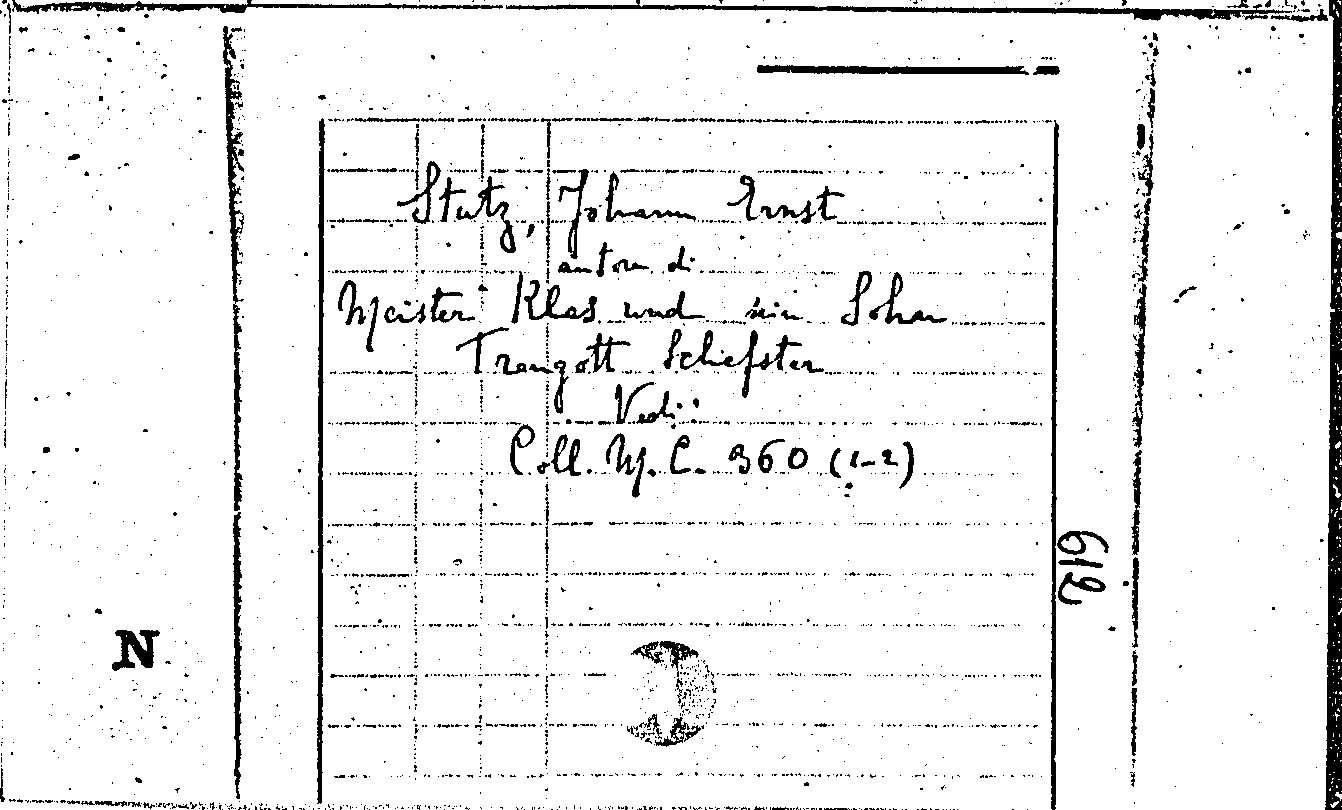 Stutz, Johann Ernst
autore di
Meister Klas und sein Sohn
Traugott Schiefster
Vedi:
Coll. M. C. 360 (1-2)
612
N